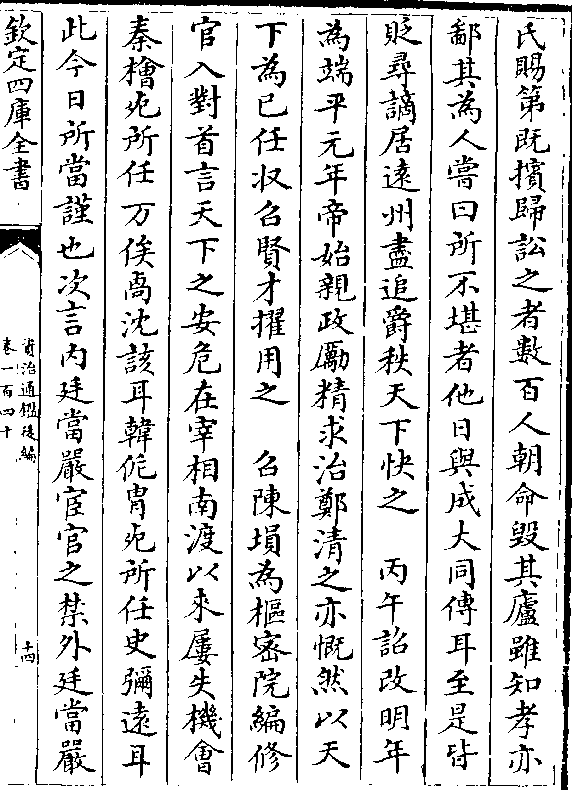 氏賜第既擯歸訟之者數百人朝命毀其廬雖知孝亦
鄙其為人嘗曰所不堪者他日與成大同傳耳至是皆
貶尋謫居遠州盡追爵秩天下快之　丙午詔改明年
為端平元年帝始親政勵精求治鄭清之亦慨然以天
下為已任収召賢才擢用之　召陳塤為樞密院編修
官入對首言天下之安危在宰相南渡以來屢失機會
秦檜死所任万俟卨沈該耳韓侂胄死所任史彌遠耳
此今日所當謹也次言内廷當嚴宦官之禁外廷當嚴
欽定四庫全書
資治通鑑後編
卷一百四十
十四